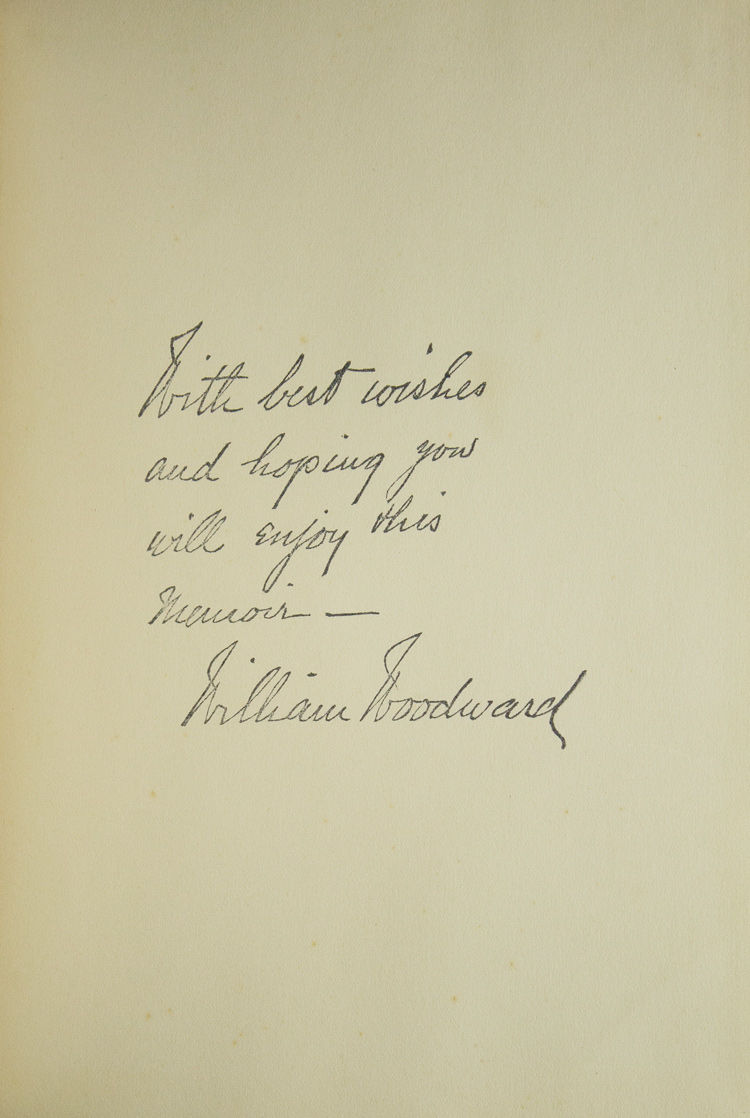 With best wishes
and hoping you
will enjoy this
Memoir —
William Woodward